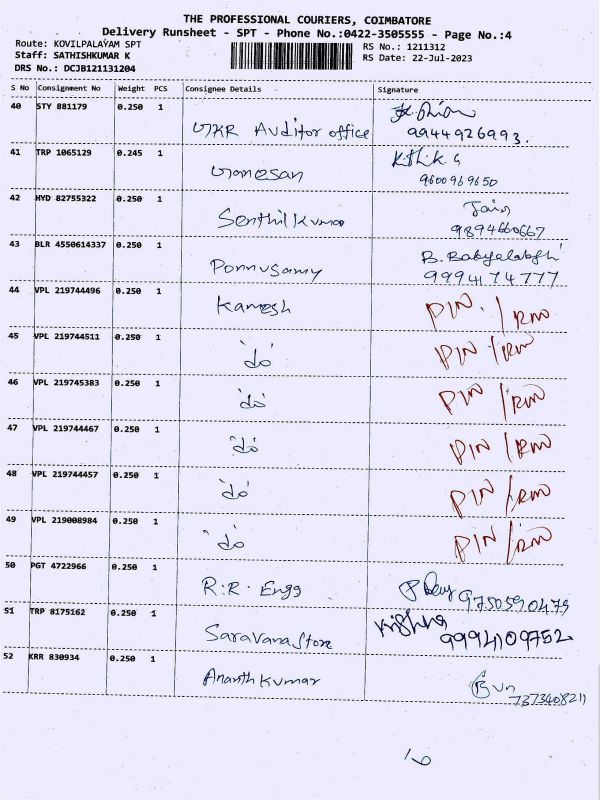 THE PROFESSIONAL COURIERS, COIMBATORE
Delivery Runsheet - SPT - Phone No.:0422-3505555 - Page No.:4
Route: KOVILPALAYAM SPT RS No.: 1211312
Staff: SATHISHKUMAR K RS Date: 22-Jul-2023
DRS No.: DCJB121131204
S No Consignment No Weight PCS Consignee Details Signature
40 STY 881179 0.250 1
Auditor office 9944926993.
41 TRP 1065129 0.245 1 Kithik.G
Ganesan 9600969650
42 HYD 82755322 0.250 1
Senthil Kumar 9894660667
43 BLR 4550614337 0.250 1
Ponnusamy 9994174777
44 VPL 219744496 0.250 1 Kamesh PIN. / RM
45 VPL 219744511 0.250 1 "do" PIN / RM
46 VPL 219745383 0.250 1 "do" PIN / RM
47 VPL 219744467 0.250 1 "do" PIN / RM
48 VPL 219744457 0.250 1 "do" PIN / RM
49 VPL 219008984 0.250 1 "do" PIN / RM
50 PGT 4722966 0.250 1
R.R. Engg 9750590475
51 TRP 8175162 0.250 1 Krishna
Saravana Store 9994109752
52 KRR 830934 0.250 1
Ananth Kumar 7373408211